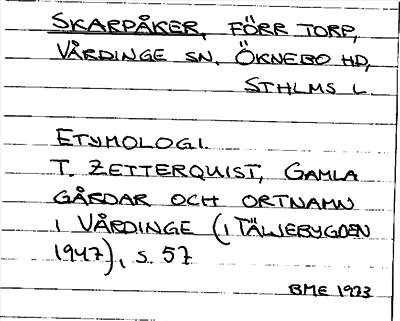 SKARPÅKER, FÖRR TORP,
VÅRDINGE SN, ÖKNEBO HD,
STHLMS L
ETYMOLOGI.
T. ZETTERQUIST, GAMLA
GÅRDAR OCH ORTNAMN
I VÅRDINGE (I TÄLJEBYGDEN
1947), S. 57
BME 1973